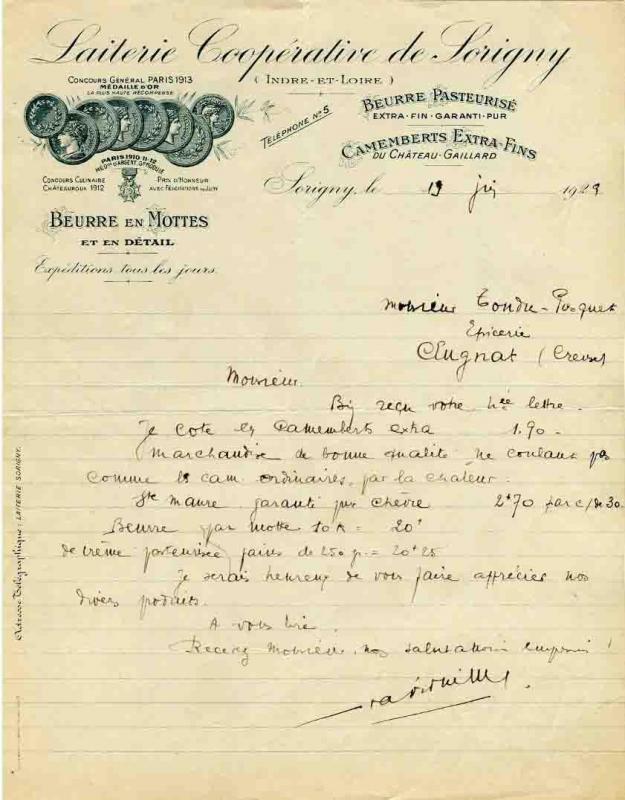 Laiterie Coopérative de Sorigny
CONCOURS GÉNÉRAL PARIS 1913
MÉDAILLE D'OR
LA PLUS HAUTE RÉCOMPENSE
( INDRE-ET-LOIRE )
TÉLÉPHONE N° 5
BEURRE PASTEURISÉ
EXTRA-FIN-GARANTI-PUR
CAMEMBERTS EXTRA-FINS
DU CHÂTEAU-GAILLARD
PARIS 1910-11-12
CONCOURS CULINAIRE
CHATEAUROUX 1912
PRIX D'HONNEUR
AVEC FÉLICITATIONS DU JURY
Sorigny, le 19 juin 1929
BEURRE EN MOTTES
ET EN DÉTAIL
Expéditions tous les jours
Monsieur Tondu-
Epicerie
Clugnat (Creuse)
Monsieur
reçu votre h^ée lettre.
Je cote les Camemberts extra 1.90-
marchandise de bonne qualité ne coulant pas
comme les cam. ordinaires, par la chaleur.
Ste Maure garanti pur chèvre 2f70 par c/ de 30.
Beurre par motte 10 k = 20f
de crème pasteurisée pains de 250 g. = 20f25
Je serais heureux de vous faire apprécier nos
divers produits.
A vous lire.
Recevez Monsieur, nos salutations
Adresse Télégraphique : LAITERIE SORIGNY.